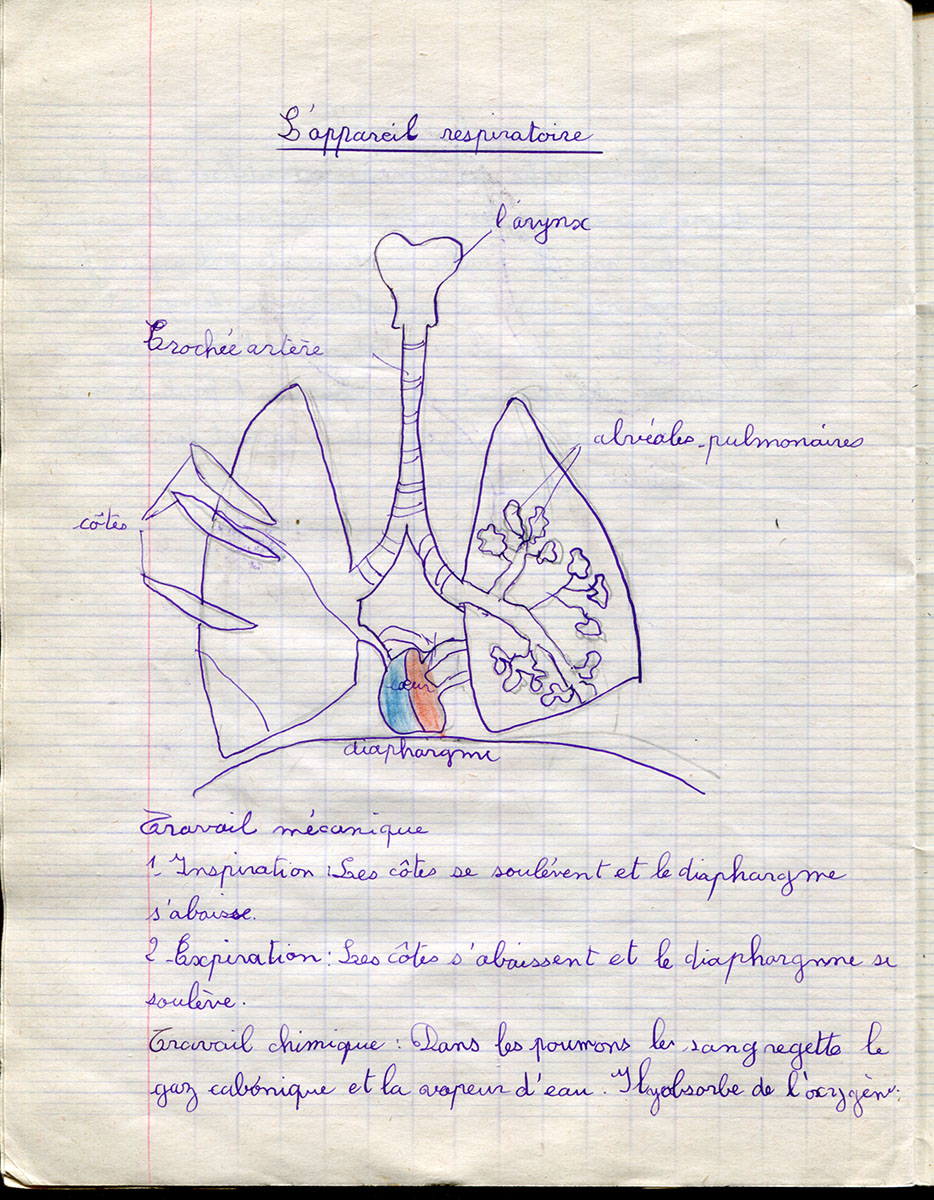 L'appareil respiratoire
l'arynx
Trochée artère
alvéales pulmonaires
côtes
cœur
diaphargme
Travail mécanique
1_ Inspiration : Les côtes se soulévent et le diaphargme
s'abaisse.
2_ Expiration : Les côtes s'abaissent et le diaphargme se
soulève.
Travail chimique : Dans les poumons le sang regette le
gaz cabónique et la vapeur d'eau. Il y absorbe de l'oxygèn